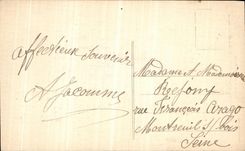 affectueux souvenir
A Jacomme
Madame A. Mademoiselle
rue François Arago
Montreuil s/ Bois
Seine